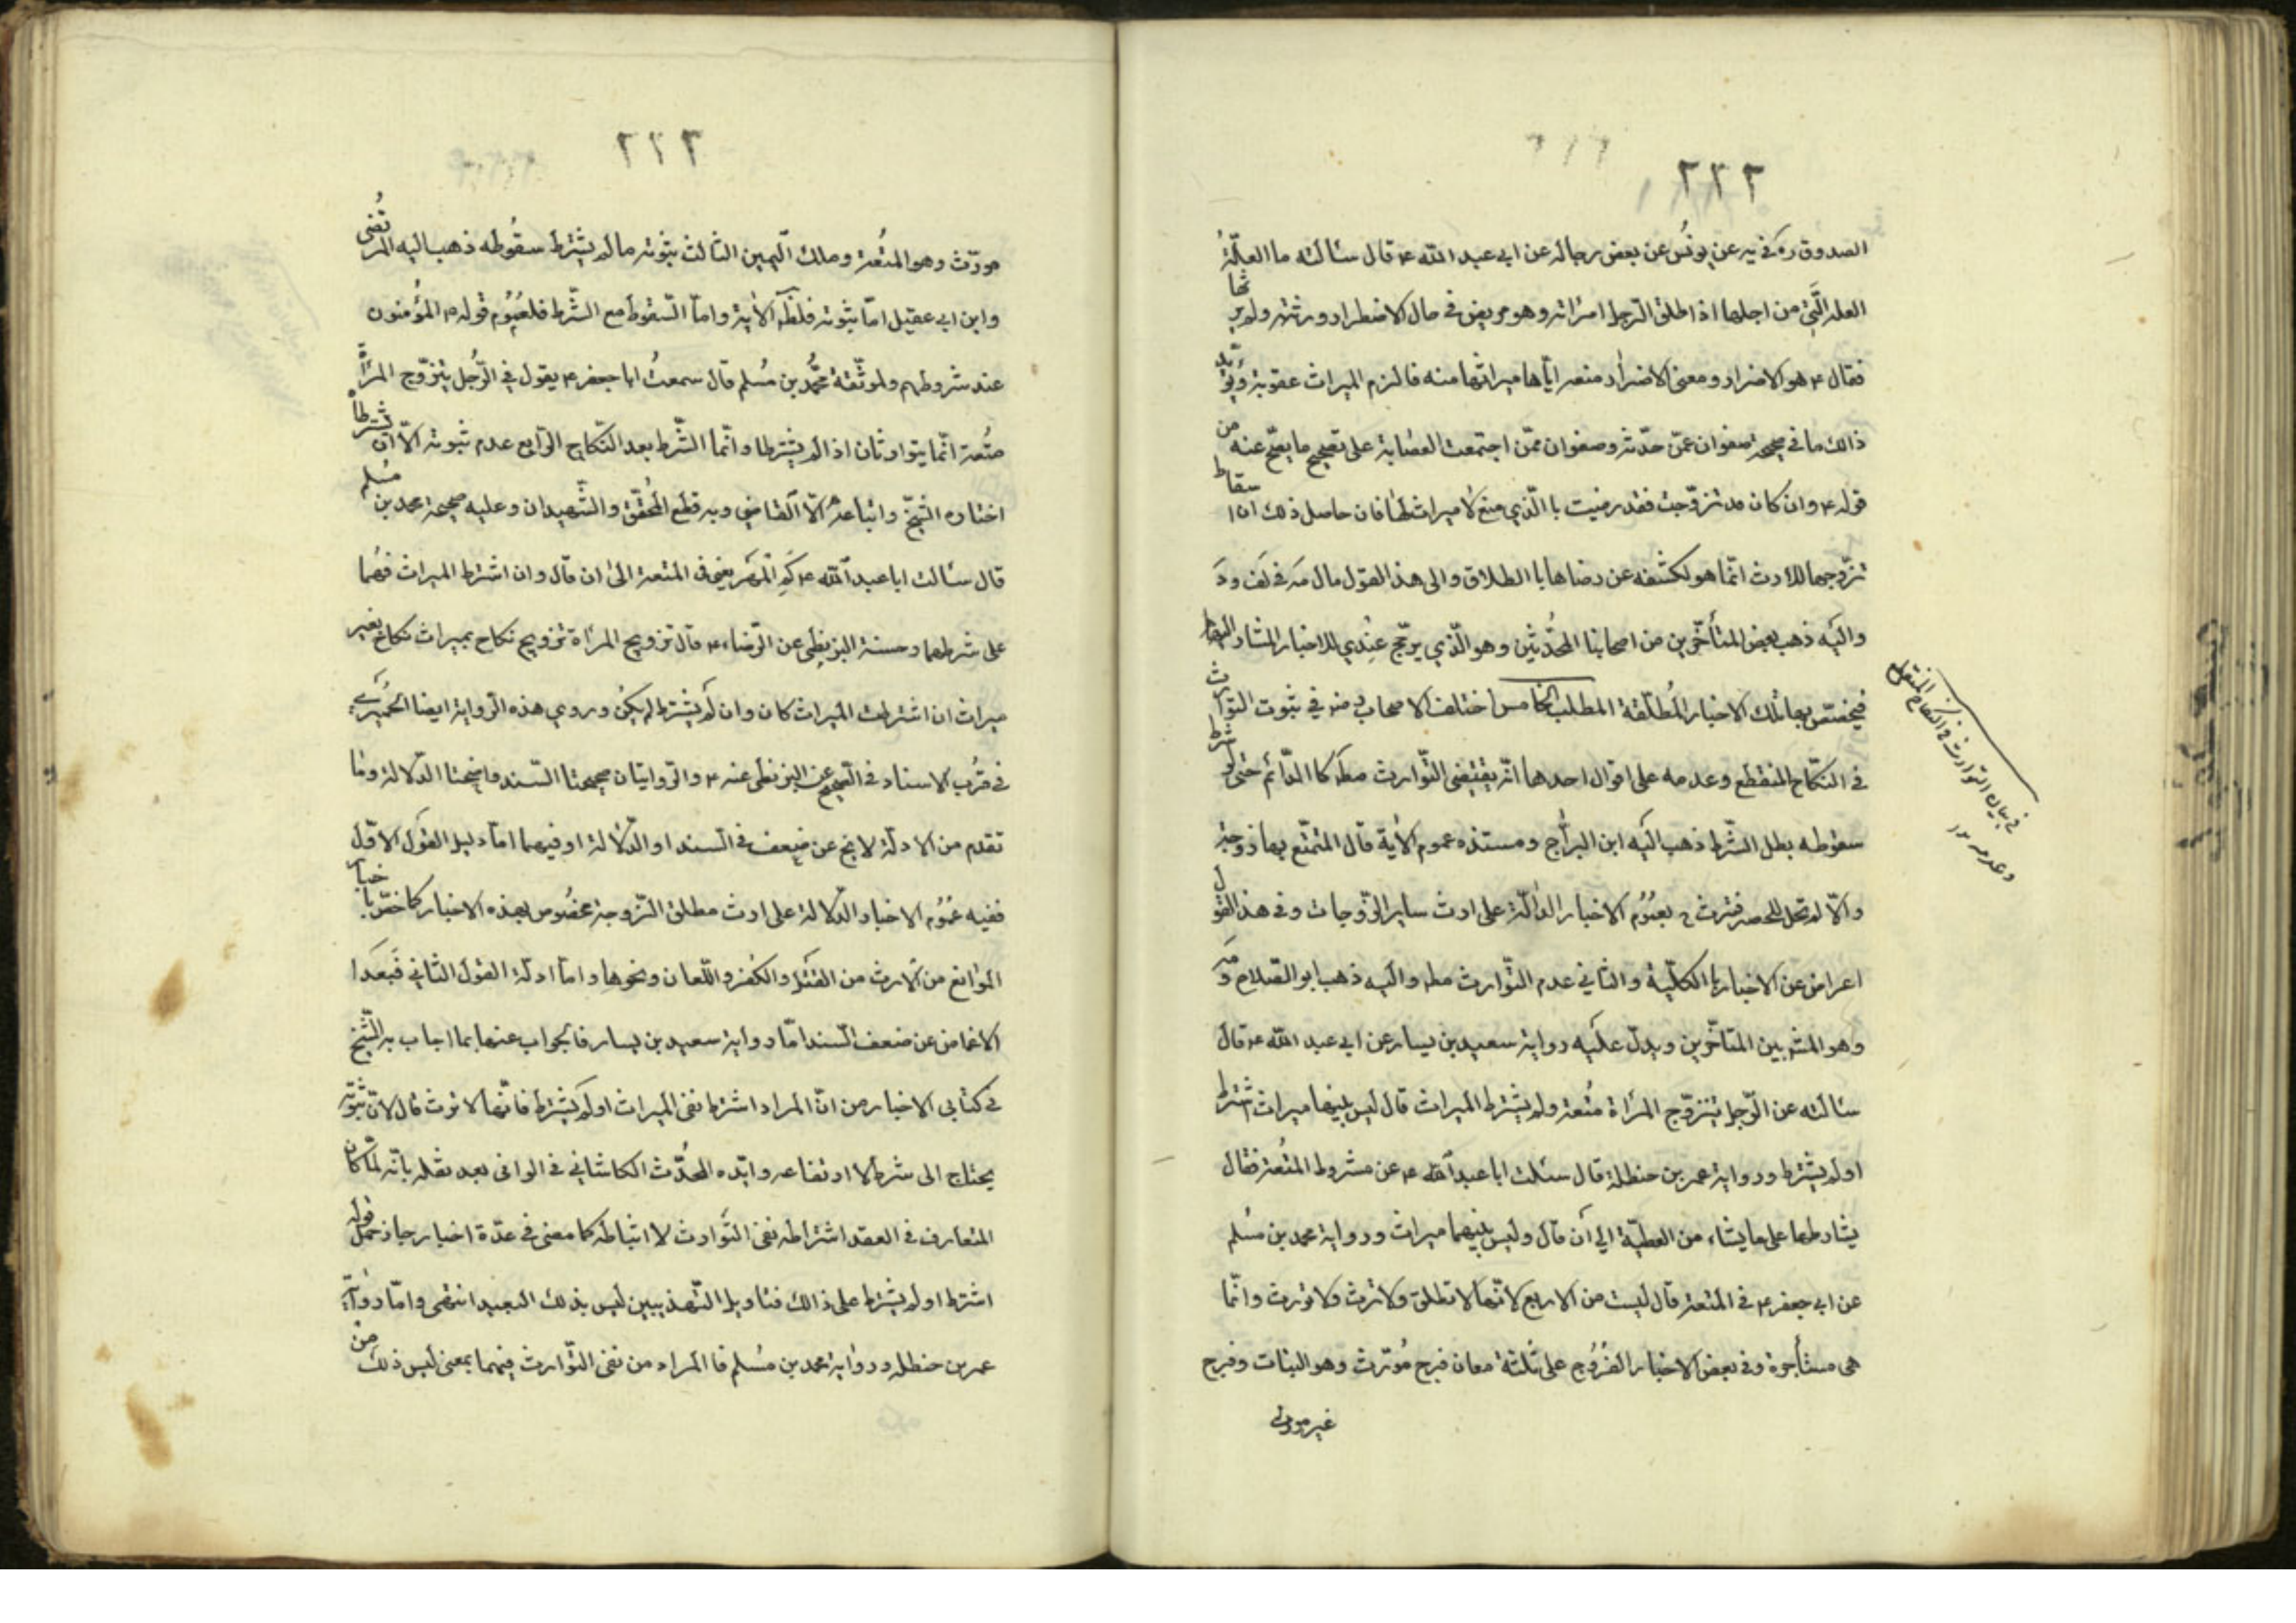 ٢٢٢
الصدوق ره في يه عن يونُس عن بعض رجاله عن ابي عبد الله ع قال سئالته ما العلّةُ
العله الَّتي من اجلها اذا طلق الرّجل امراته وهو مريض في حال الاضطرار ورثته ولم يرثها
فقال ع هو الاضرار ومعنى الاضرار منعه ايّاها ميراثها منه فالزم الميراث عقوبة ويُؤيّد
ذالك ما في صحيحة صفوان عمّن حدّثه وصفوان ممّن اجتمعت العصابة على تصحيح ما يصحّ عنه من
قوله ع وان كان قد تزوّجت فقد رضيت با الّذي صنع لا ميراث لها فان حاصل ذلك ان اسقاط
تزّوجها للارث انّما هو لكشفه عن رضاها با الطلاق والى هذ القول مال
واليَه ذهب بعض المتأخّرين من اصحابنا المحُدّثين وهو الّذي يرجّح عنِدي للاخبار المشار اليها
فيخصّص بها تلك الاخبار المُطلَقة المطلب الخامس اختلف الاصحاب رض في ثبوت التوارث
في النكّاح المنقطع وعدمه على اقوال احدها انّه يقتضى التّوارث مطلقا كا الدّائم حتى لو شرط
سقوطه بطل الشّرط ذهب اليَه ابن البرّاج ومستنده عموم الأية قال المتمتّع بها زوجة
والّا لم تحل للحصر فترث ح بعمُوُم الاخبار الدّالّة على ارث ساير الزّوجات وفي هذ القول
اعراض عن الاخبار با الكليّة والثاني عدم التّوارث مطلقا واليَه ذهب ابو الصّلاح
وهو المشهور بين المتاخّرين ويدلّ علَيه رواية سعيد بن يسار عن ابي عبد الله ع قال
سئالته عن الرّجل يتزوّج المرأة متُعة ولم يشترط الميراث قال ليس بينهما ميراث اشترط
او لم يشترط ورواية عمر بن حنظلة قال سئلت ابا عبد الله ع عن مشروط المتُعة فقال
يشارطها على ما يشاء من العطيّة الي ان قال وليس بينهما ميراث ورواية محمد بن مسُلم
عن ابي جعفر ع في المتعة قال ليست من الاربع لانّها لا تطلق ولا ترث ولا تورث وانّما
هي مستأجرة وفي بعض الاخبار الفُرُوج على ثلثة معان فرج مُوّرث وهو البتات وفرج
غير مورث
في بيان التوارث في النكاح المنقطع
وعدمه ١٢
٢٢٣
مورّث وهو المتُعة وملك اليَمين الثالث ثبوته ما لم يشترط سقُوطه ذهب اليه المرتُضى
وابن ابي عقيل امّا ثبوته فلظاهر الأية وامّا السّقوط مع الشّرط فلعمُوُم قوله ص المؤمنون
عند شروطهم ولموثّقة محمُّد بن مسُلم قال سمعتُ ابا جعفر ع يقول في الرّجُل يتزوّج المرأة
متُعة انّما يتوارثان اذا لم يشترطا وانّما الشّرط بعد النّكاح الرّابع عدم ثبوته الّا ان يشترطا
اختاره الشّيخ واتباعه الّا القاضي وبه قطع المُحقّق والشّهيدان وعليه صحيحة محمد بن مسُلم
قال سئالت ابا عبد الله ع كَمِ المهر يعني في المتعة الى ان قال وان اشترط الميراث فهُما
على شرطهما وحسنة البزنطي عن الرّضاء ع قال تزويج المرأة تزويج نكاح بميراث نكاح بغير
ميراث ان اشترطت الميراث كان وان لمَ يشترط لم يكُن وروي هذه الرّواية ايضا الحمُيَري
في قرُب الاسناد في الصّحيح عن البزنطي عنه ع والرّوايتان صحيحتا السّند واضحتا الدّلالة وما
تقدم من الادلّة لا يخ عن ضعف في السند او الدّلالة او فيهما امّا دليل القول الاوّل
ففيه عمُوُم الاخبار الدّلالة على ارث مطلق الزّوجة مخصُوص بهذه الاخبار كما خصّ باخبار
الموانع من الارث من القتل والكفر واللّعان ونحوها وامّا ادلّة القول الثاني فَبعَد ا
الاغماض عن ضعف السّند امّا رواية سعيد بن يسار فالجواب عنها بما اجاب به الشّيخ
في كتابي الاخبار من انّ المراد اشترط نفى الميراث او لم يشترط فانّها لا تورث قال لانّ ثبوته
يحتاج الى شرط لا ارتفاعه وايّده المحدُّث الكاشاني في الوافى بعد نقله بانّه لمّا كان
المتعارف في العقد اشتراطه نفى التوارث لا اثباطه كما مضى في عدّة اخبار جاز حمل قوله
اشترط او لم يشترط على ذالك فتاويل التّهذيبين ليس بذلك البعيد انتهى وامّا رواية
عمر بن حنظله ورواية محمد بن مسُلم فا المراد من نفى التّوارث فيهما بمعنى ليس ذلك من